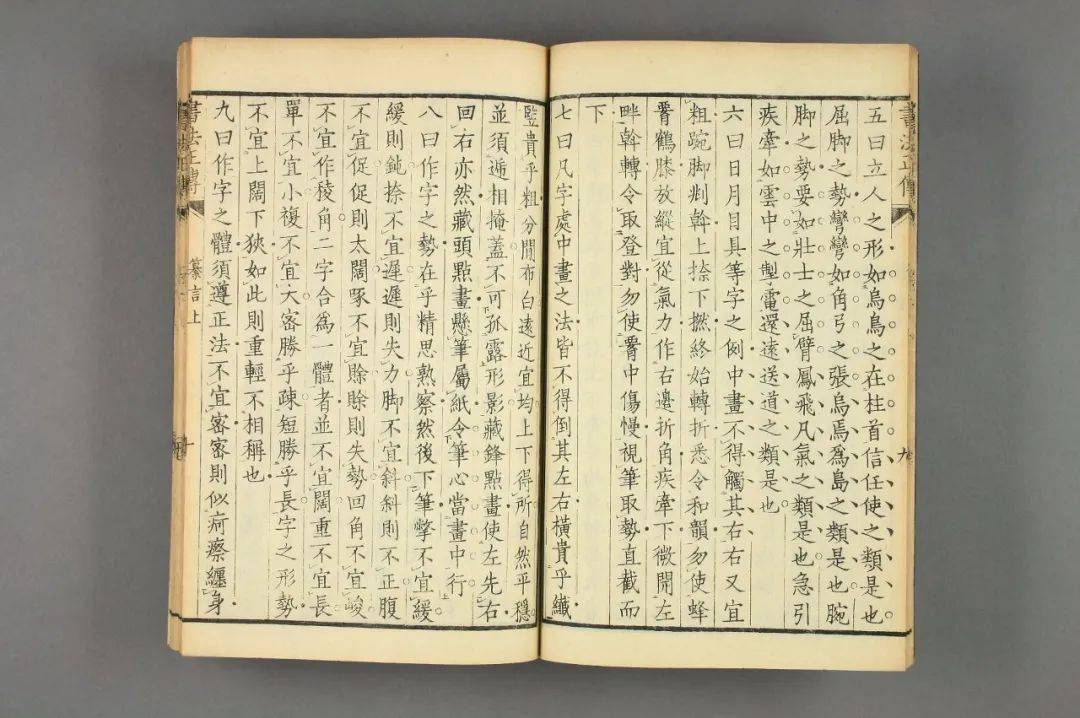 書法正傳
九
五曰立人之形如烏鳥之在柱首信任使之類是也
屈脚之勢彎彎如角弓之張烏焉爲島之類是也腕
脚之勢要如壯士之屈臂鳳飛凡氣之類是也急引
疾牽如雲中之掣電還遠送道之類是也
六曰日月目具等字之例中畫不得觸其右右又宜
粗踠脚剗斡上捺下撚終始轉折悉令和韻勿使蜂
鶴膝放縱宜從氣力作右邊折角疾牽下微開左
畔斡轉令取登對勿使中傷慢視筆取勢直截而
下
七曰凡字處中畫之法皆不得倒其左右橫貴乎纖
豎貴乎粗分閒布白遠近宜均上下得所自然平穩
並須遞相掩蓋不可孤露形影藏鋒點畫使左先右
回右亦然藏頭點畫懸筆屬紙令筆心當畫中行
八曰作字之勢在乎精思熟察然後下筆撆不宜緩
緩則鈍捺不宜遲遲則失力脚不宜斜斜則不正腹
不宜促促則太闊啄不宜賖賖則失勢回角不宜峻
不宜作稜角二字合爲一體者並不宜闊重不宜長
單不宜小複不宜大密勝乎疎短勝乎長字之形勢
不宜上闊下狹如此則重輕不相稱也
九曰作字之體須遵正法不宜密密則似疴瘵纏身
書法正傳
纂言上
十